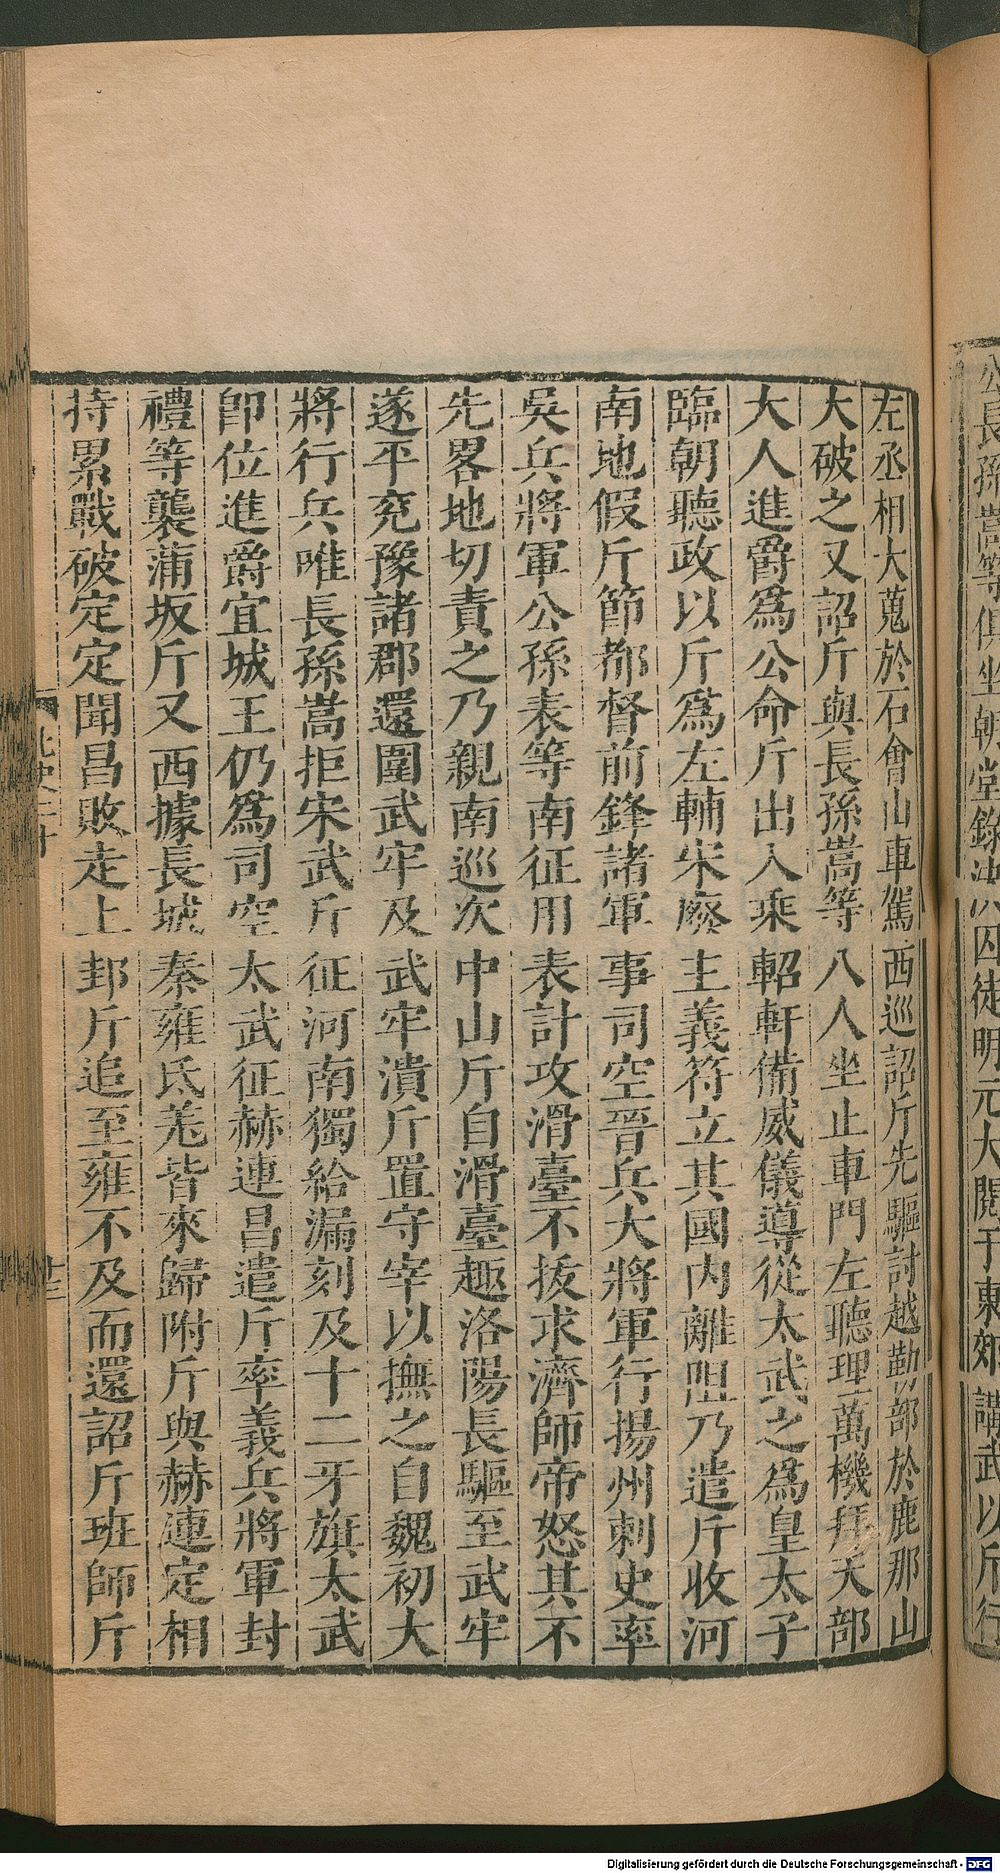 公長孫嵩等俱坐朝堂錄決囚徒明元大閱于東郊講武以斤行
左丞相大蒐於石會山車駕西巡詔斤先驅討越勤部於鹿那山
大破之又詔斤與長孫嵩等八人坐止車門左聽理萬機拜天部
大人進爵爲公命斤出入乘軺軒備威儀導從太武之爲皇太子
臨朝聽政以斤爲左輔宋廢主義符立其國內離阻乃遣斤收河
南地假斤節都督前鋒諸軍事司空晉兵大將軍行揚州刺史率
吳兵將軍公孫表等南征用表計攻滑臺不拔求濟師帝怒其不
先畧地切責之乃親南巡次中山斤自滑臺趣洛陽長驅至武牢
遂平兖豫諸郡還圍武牢及武牢潰斤置守宰以撫之自魏初大
將行兵唯長孫嵩拒宋武斤征河南獨給漏刻及十二牙旗太武
卽位進爵宜城王仍爲司空太武征赫連昌遣斤率義兵將軍封
禮等襲蒲坂斤又西據長城秦雍氐羌皆來歸附斤與赫連定相
持累戰破定定聞昌敗走上邽斤追至雍不及而還詔斤班師斤
北史二十
廿三
Digitalisierung gefördert durch die Deutsche Forschungsgemeinschaft - DFG